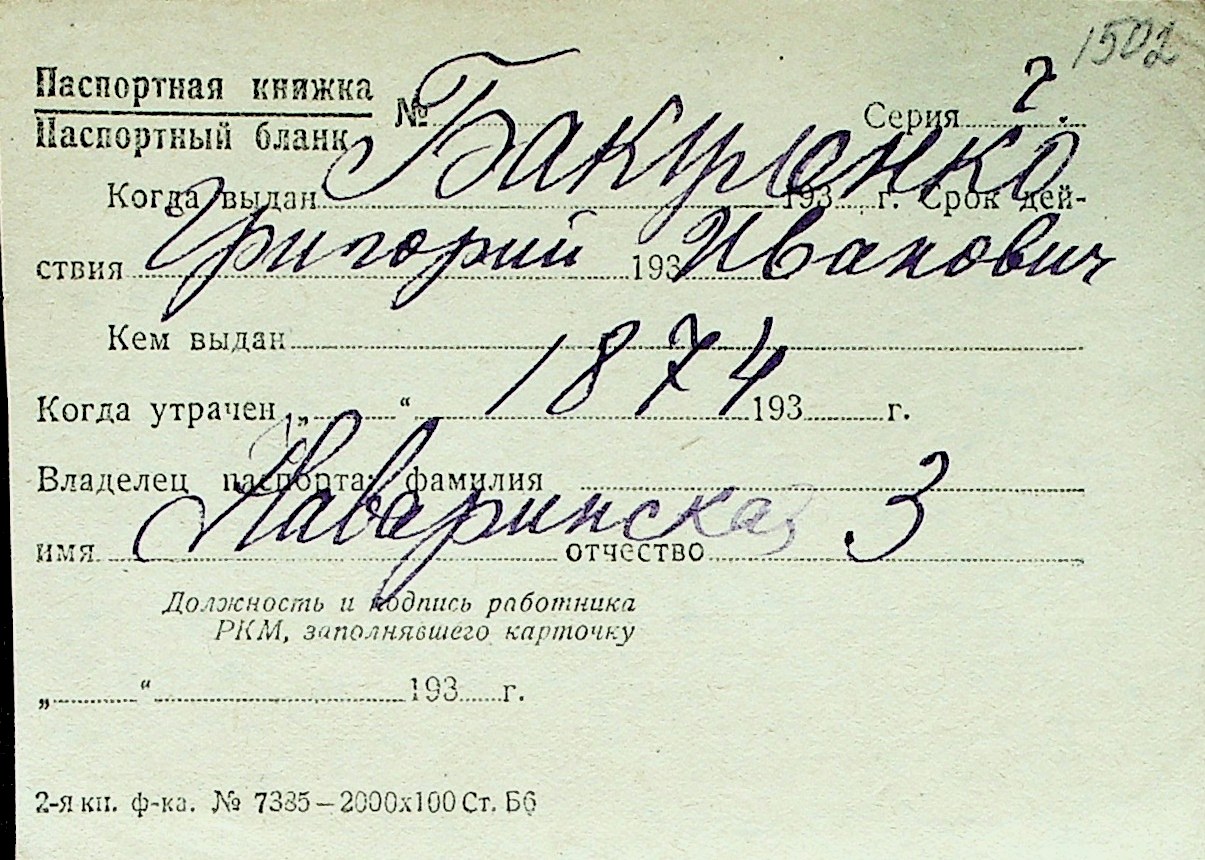 1502
Паспортная книжка
Паспортный бланк № Серия 2
Бакуленко
Когда выдан 193 г. Срок дей-
ствия 193
Григорий Иванович
Кем выдан
1874
Когда утрачен „ “ 193 г.
Владелец паспорта: фамилия
Наваринская 3
имя отчество
Должность и подпись работника
РКМ, заполнявшего карточку
„ “ 193 г.
2-я кн. ф-ка. № 7385—2000х100 Ст. Б6